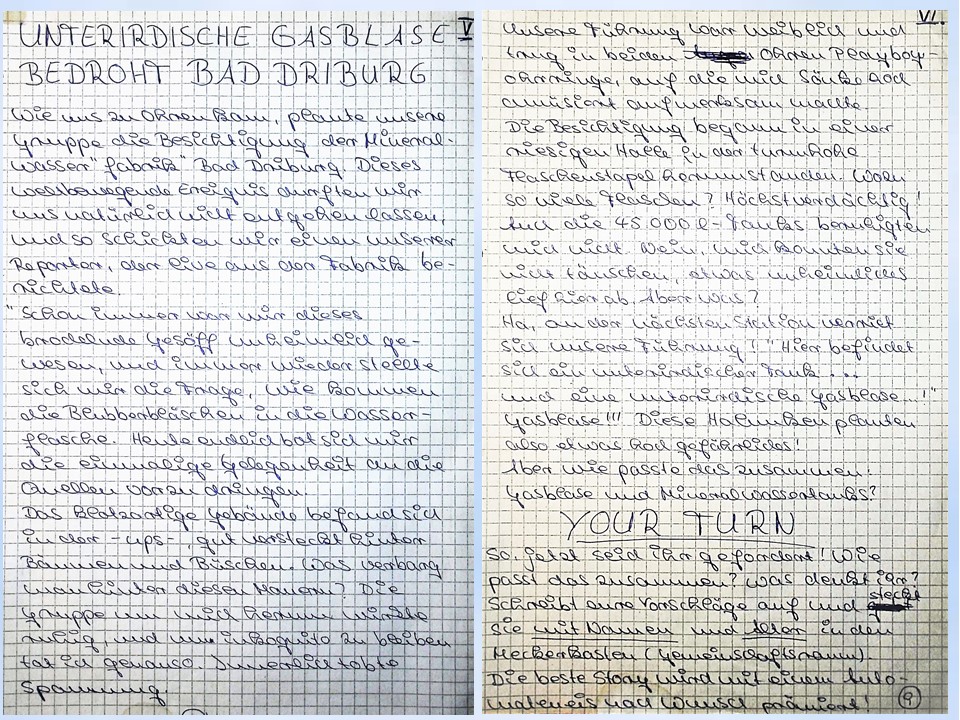 V
UNTERIRDISCHE GASBLASE
BEDROHT BAD DRIBURG
Wie uns zu Ohren kam, plante unsere
Gruppe die Besichtigung der Mineral-
wasser"fabrik" Bad Driburg. Dieses
weltbewegende Ereignis durften wir
uns natürlich nicht entgehen lassen,
und so schickten wir einen unserer
Reporter, der live aus der Fabrik be-
richtete.
"Schon immer war mir dieses
brodelnde Gesöff unheimlich ge-
wesen, und immer wieder stellte
sich mir die Frage, wie kommen
die Blubberbläschen in die Wasser-
flasche. Heute endlich bot sich mir
die einmalige Gelegenheit an die
Quellen vorzudringen.
Das klotzartige Gebäude befand sich
in der -ups-, gut versteckt hinter
Bäumen und Büschen. Was verbarg
man hinter diesen Mauern? Die
Gruppe um mich herum wirkte
ruhig, und um inkognito zu bleiben
tat ich genauso. Innerlich tobte
Spannung.
VI.
Unsere Führung war weiblich und
trug in beiden Ohren Playboy-
ohrringe, auf die mich Sönke Rod
amüsiert aufmerksam machte.
Die Besichtigung begann in einer
riesigen Halle in der turmhohe
Flaschenstapel herumstanden. Wozu
so viele Flaschen? Höchst verdächtig!
Auch die 45000 l-Tanks beruhigten
mich nicht. Nein, mich konnten sie
nicht täuschen, etwas unheimliches
lief hier ab. Aber was?
Ha, an der nächsten Station verriet
sich unsere Führung! "Hier befindet
sich ein unterirdischer Tank ...
und eine unterirdische Gasblase...!"
Gasblase!!! Diese Halunken planten
also etwas hochgefährliches!
Aber wie passte das zusammen:
Gasblase und Mineralwassertanks?
YOUR TURN
So, jetzt seid ihr gefordert! Wie
passt das zusammen? Was denkt ihr?
Schreibt eure Vorschläge auf und steckt
sie mit Namen und Alter in den
Meckerkasten (Gemeinschaftsraum).
Die beste Story wird mit einem Auto-
mateneis nach Wunsch prämiert!
9